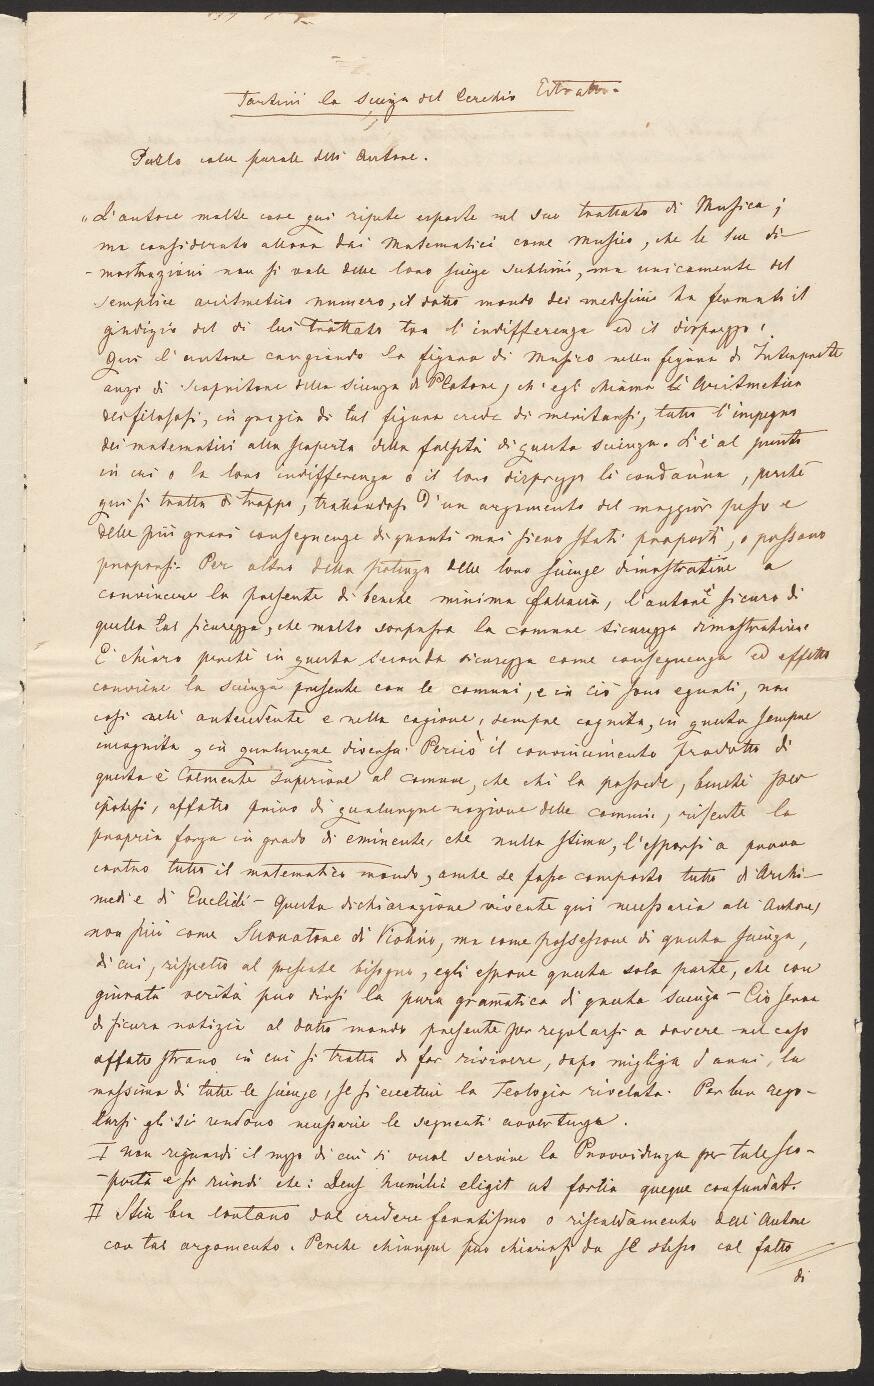 Tartini la scienza del Cerchio Estratto.
Parlo colle parole dell' Autore.
"L'autore molte cose qui ripete esposte nel suo trattato di Musica;
ma considerato allora dai Matematici come Musico, che le sue di-
-mostrazioni non si vale delle loro scienze sublimi, ma unicamente del
semplice aritmetico numero, il dotto mondo dei medesimi ha fermato il
giudizio del di lui trattato tra l'indifferenza ed il disprezzo.
Qui l'autore cangiando la figura di Musico nella figura di Interprete
anzi di scopritore della scienza di Platone, ch'egli chiama l'Aritmetica
dei filosofi, in grazia di tal figura crede di meritarsi, tutto l'impegno
dei matematici alla scoperta della falsità di questa scienza. Si è al punto
in cui o la loro indifferenza o il loro disprezzo li condanna, perchè
qui si tratta di troppo, trattandosi d'un argomento del maggior peso e
delle più gravi conseguenze di quanti mai sieno stati proposti, o possano
proporsi. Per altro della potenza delle loro scienze dimostrative a
convincere la presente di benchè minima fallacia, l'autore è sicuro di
quella tal sicurezza, che molto sorpassa la comune sicurezza dimostrativa.
E' chiaro perchè in questa seconda sicurezza come conseguenza ed effetto
conviene la scienza presente con le comuni, e in ciò sono eguali, non
così nell' antecedente e nella cagione, sempre cognita, in questa sempre
incognita, in qualunque diversa. Perciò il convincimento prodotto di
questa è talmente superiore al comune, che chi la possede, benchè per
ipotesi, affatto privo di qualunque nozione delle comuni, risente la
propria forza in grado di eminente, che nulla stima, l'esporsi a prova
contro tutto il matematico mondo, anche se fosse composto tutto di Archi-
medi e di Euclidi - Questa dichiarazione vivente qui necessaria all' Autore,
non più come Suonatore di Violino, ma come possessore di questa scienza,
di cui, rispetto al presente bisogno, egli espone questa sola parte, che con
giurata verità puo dirsi la pura gramatica di questa scienza - Ciò serva
di sicura notizia al dotto mondo presente per regolarsi a dovere nel caso
affatto strano in cui si tratta di far rivivere, dopo migliaja d'anni, la
massima di tutte le scienze, se si eccettui la Teologia rivelata. Per ben rego-
larsi gli si rendono necessarie le seguenti avvertenze.
I Non riguardi il mezzo di cui si vuol servire la Provvidenza per tale sco-
-perta e si ricordi che: Deus humilia eligit ut fortia queque confundat.
II Stia ben lontano dal credere fanatismo o riscaldamento dell' Autore
con tal argomento. Perchè chiunque può chiarirsi da se stesso col fatto
di